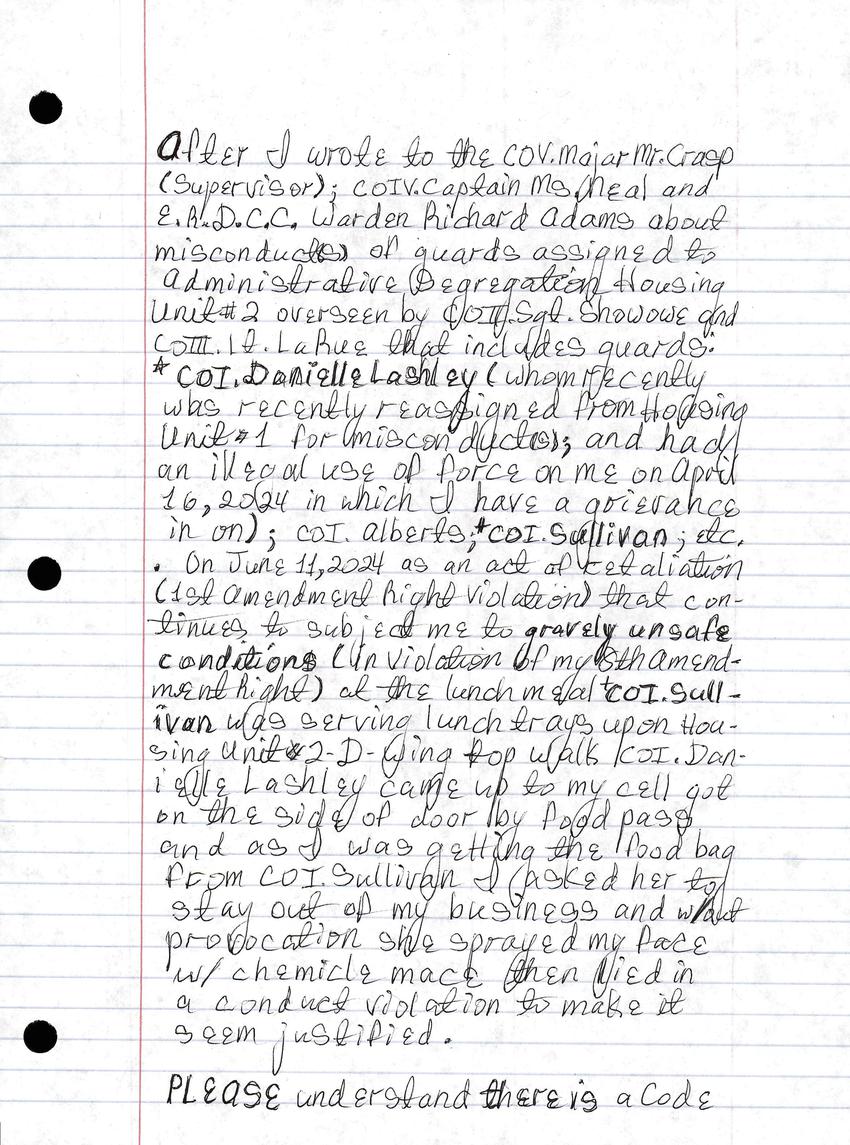 After I wrote to the COV. Major Mr. Crasp
(Supervisor); COIV. Captain Ms. Neal and
E.R.D.C.C. Warden Richard Adams about
misconduct(s) of guards assigned to
Administrative Segregation Housing
Unit#2 overseen by COII. Sgt. Showowe and
COIII. Lt. LaRue that includes guards:
* COI. Danielle Lashley (whom recently
was recently reassigned from Housing
Unit#1 for misconduct(s); and had
an illegal use of force on me on April
16, 2024 in which I have a grievance
in on); COI. Alberts; *COI. Sullivan; etc.
. On June 11, 2024 as an act of retaliation
(1st Amendment Right Violation) that con-
tinues to subject me to gravely unsafe
conditions (In Violation of my 8th Amend-
ment Right) at the lunch meal *COI. Sull-
ivan was serving lunch trays upon Hou-
sing Unit#2-D-Wing top walk COI. Dan-
ielle Lashley came up to my cell got
on the side of door by food pass
and as I was getting the food bag
from COI. Sullivan I asked her to
stay out of my business and w/out
provocation she sprayed my face
w/ chemicle mace then lied in
a conduct violation to make it
seem justified.
PLEASE understand there is a Code